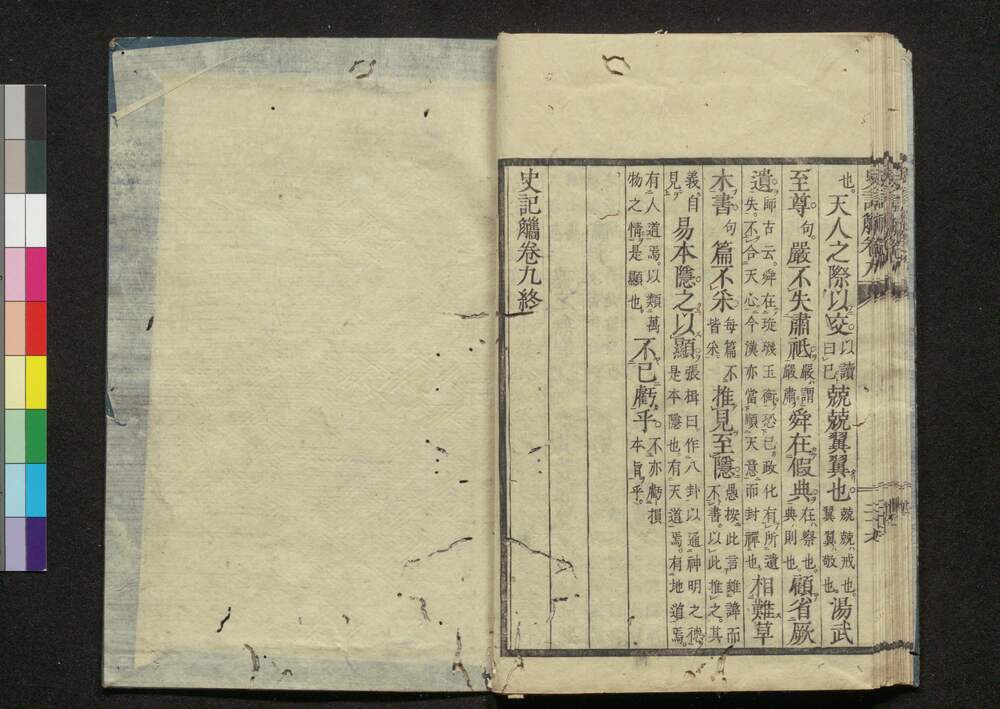 也。天人之際以交。以讀曰已兢兢翼翼也。兢兢戒也。翼翼敬也。湯武
至尊。句。嚴不失肅祗。嚴謂嚴肅舜在假典。在察也。典則也。顧省厥
遺。師古云。舜在琁璣玉衡恐已政化有所遺失。不合天心今漢亦當順天意而封禪也。相難草
木書。句。篇不采。每篇不皆采推見至隱。愚按此言雖諱而不書。以此推之。其
義自見。易本隱之以顯。張楫曰作八卦以通神明之德。是本隱也。有天道焉。有地道焉。
有人道焉。以類萬物之情是顯也。不已虧乎。不亦虧損本旨乎。
史記觿卷九終
史記觿卷九